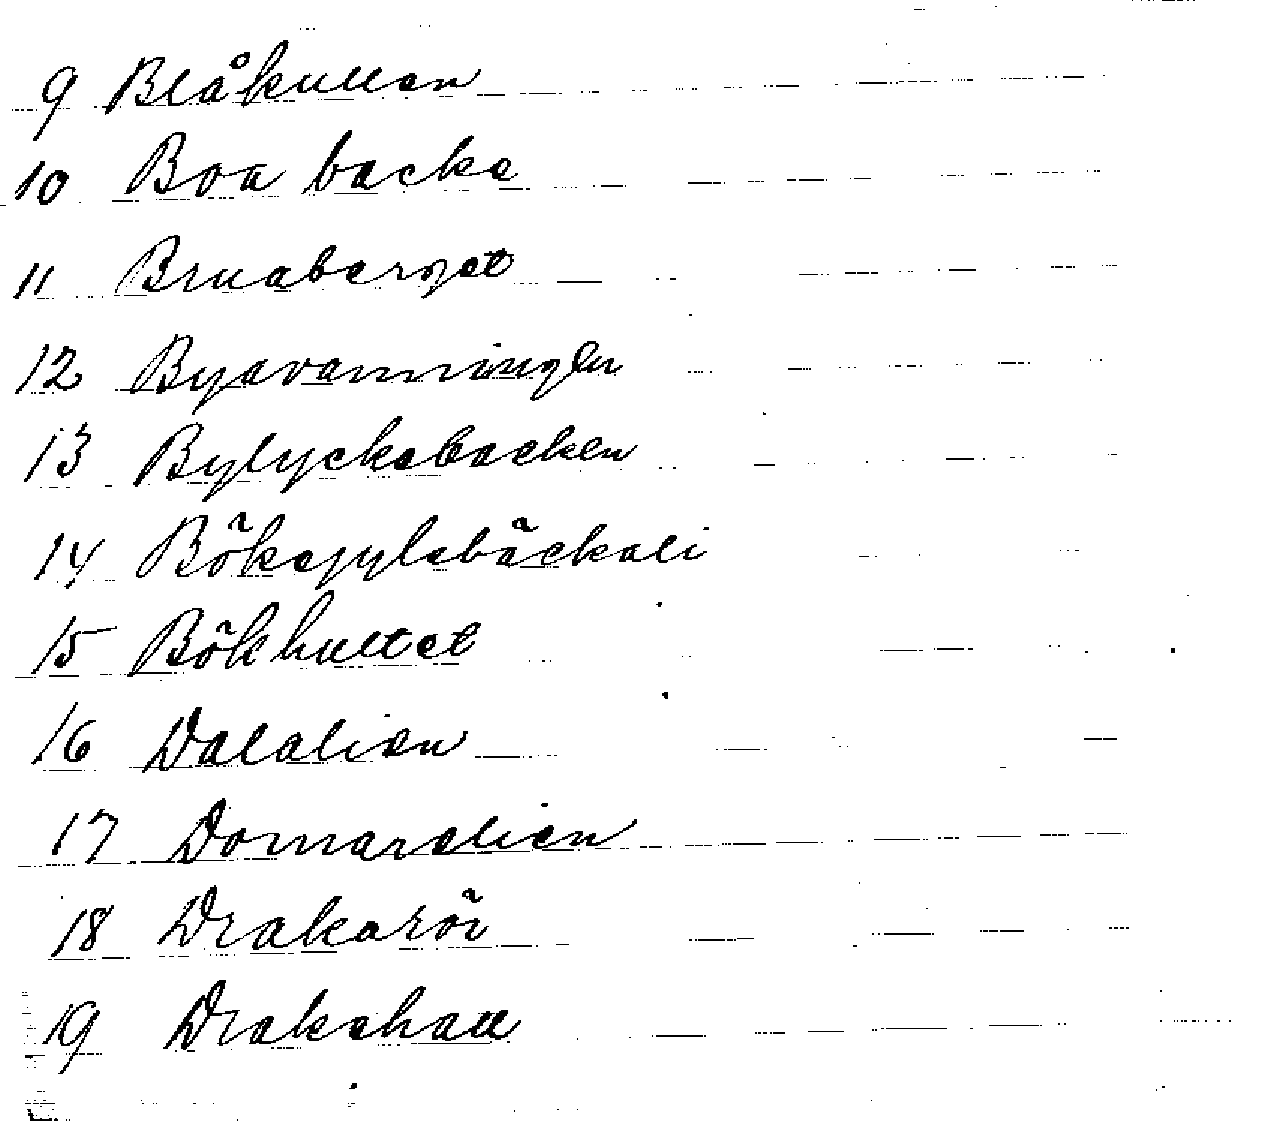 9 Blåkullen
10 Boa backa
11 Bruaberget
12 Byavanningen
13 Bylyckebacken
14 Bökegylebäckali
15 Bökhultet
16 Dalalien
17 Domarelien
18 Drakarör
19 Drakahall